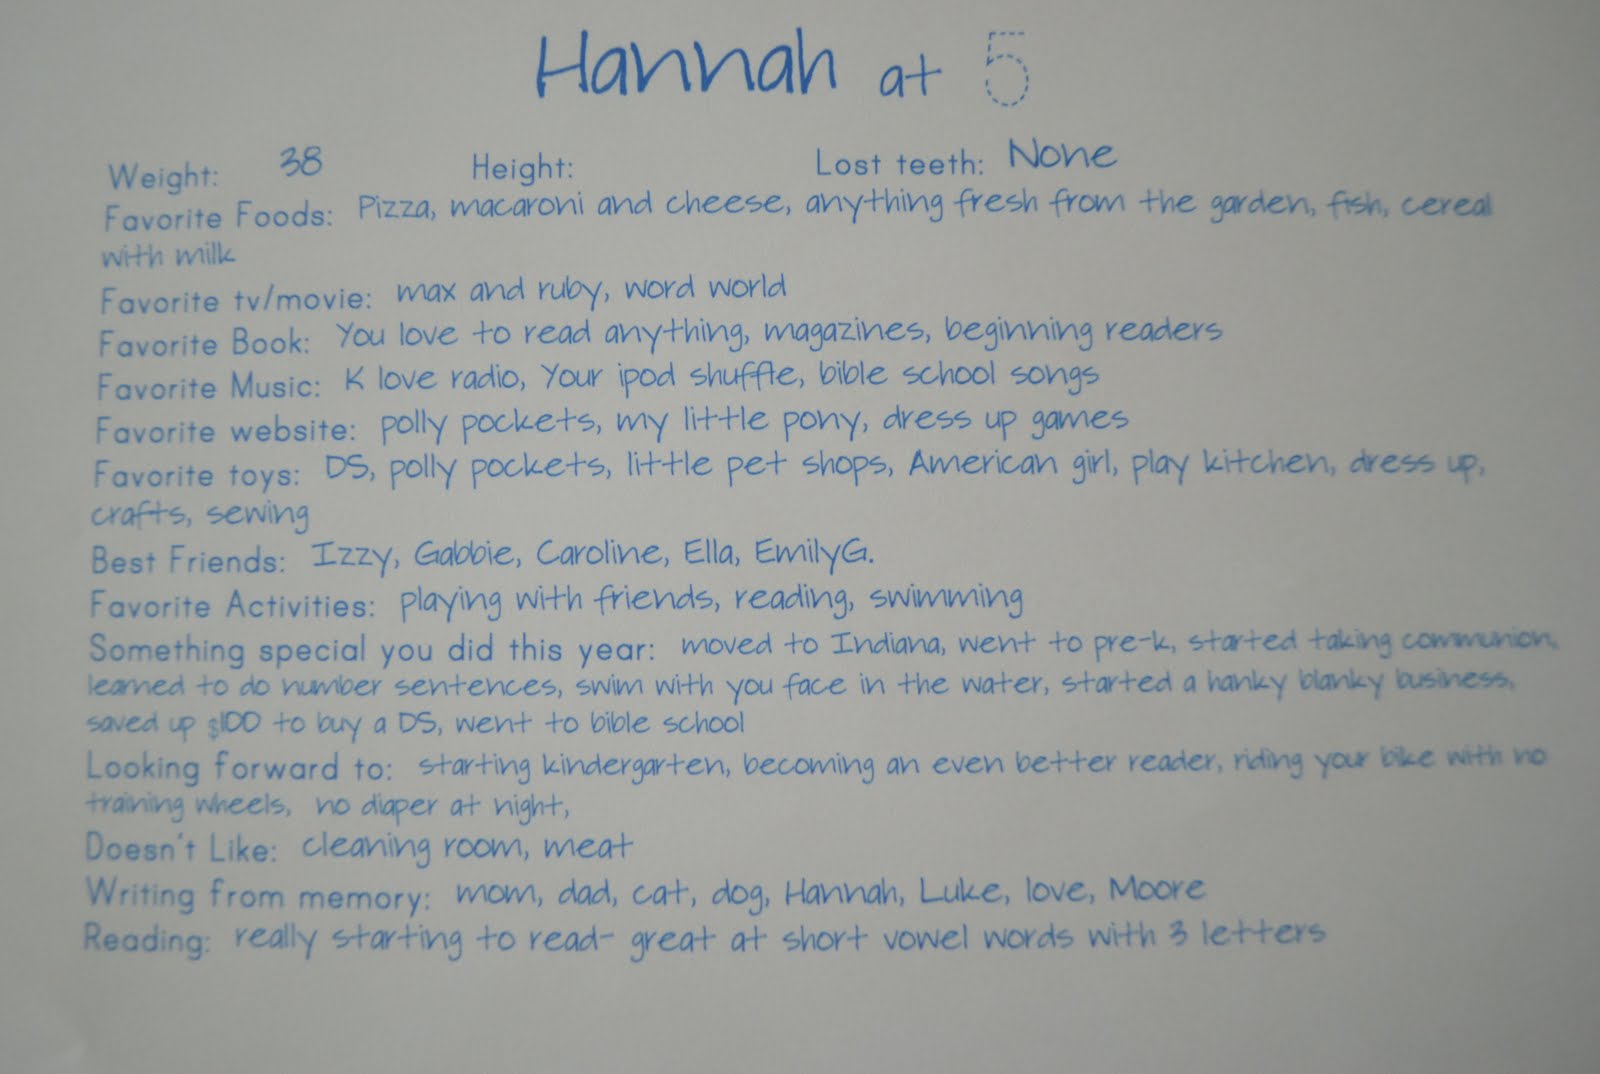 Hannah at 5
Weight: 38 Height: Lost teeth: None
Favorite Foods: Pizza, macaroni and cheese, anything fresh from the garden, fish, cereal
with milk
Favorite tv/movie: max and ruby, word world
Favorite Book: You love to read anything, magazines, beginning readers
Favorite Music: K love radio, Your ipod shuffle, bible school songs
Favorite website: polly pockets, my little pony, dress up games
Favorite toys: DS, polly pockets, little pet shops, American girl, play kitchen, dress up,
crafts, sewing
Best Friends: Izzy, Gabbie, Caroline, Ella, EmilyG.
Favorite Activities: playing with friends, reading, swimming
Something special you did this year: moved to Indiana, went to pre-k, started taking communion,
learned to do number sentences, swim with you face in the water, started a hanky blanky business,
saved up $100 to buy a DS, went to bible school
Looking forward to: starting kindergarten, becoming an even better reader, riding your bike with no
training wheels, no diaper at night,
Doesn't Like: cleaning room, meat
Writing from memory: mom, dad, cat, dog, Hannah, Luke, love, Moore
Reading: really starting to read- great at short vowel words with 3 letters